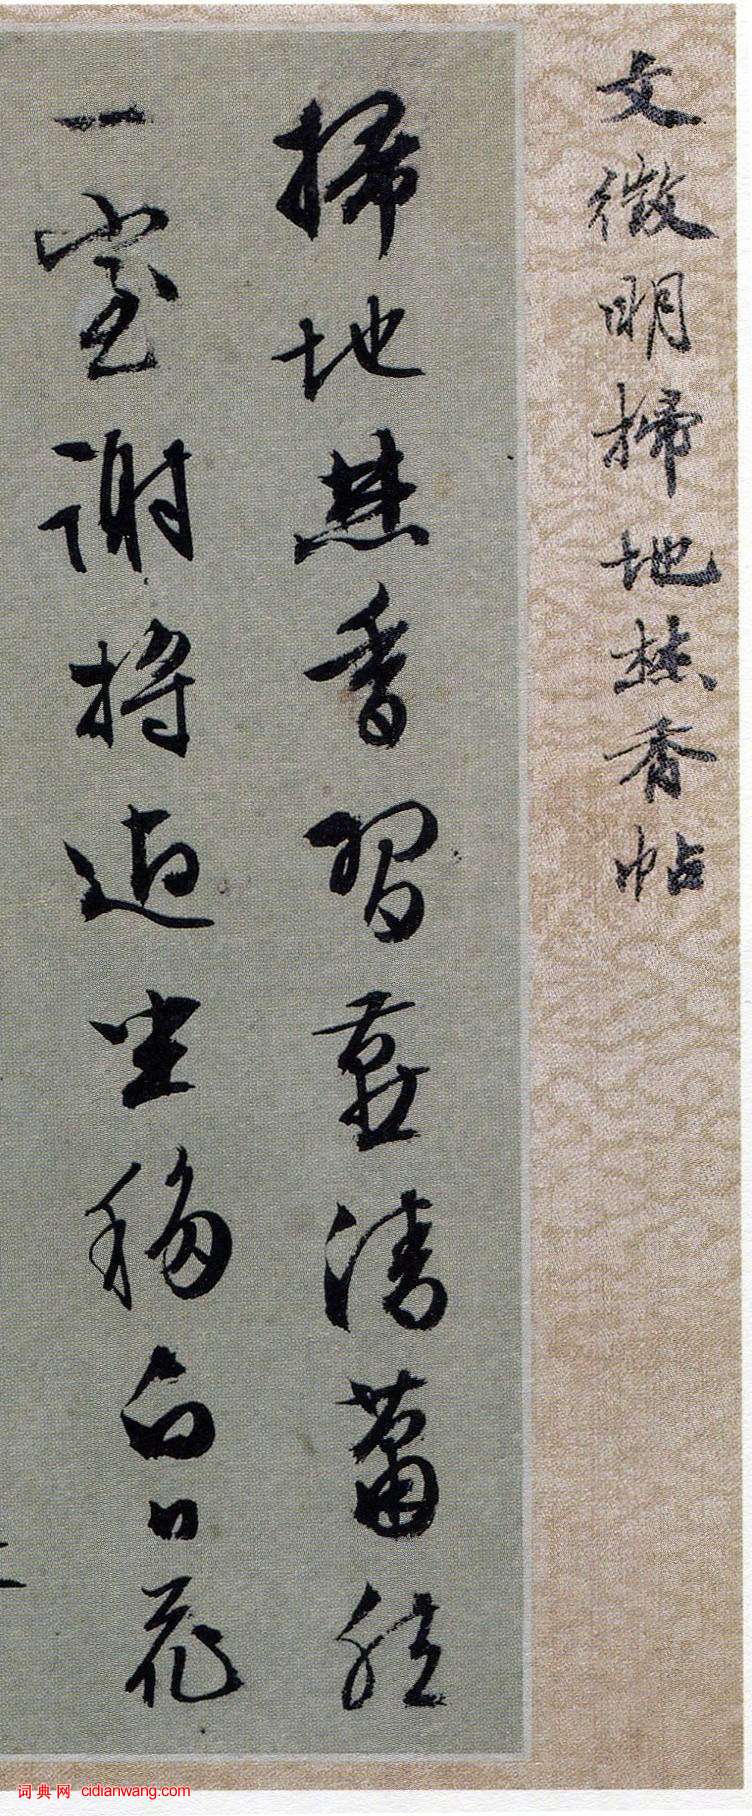 文徵明掃地焚香帖
掃地焚香習燕清蕭然
一室謝將迎坐移白日花
词典网 cidianwang.com